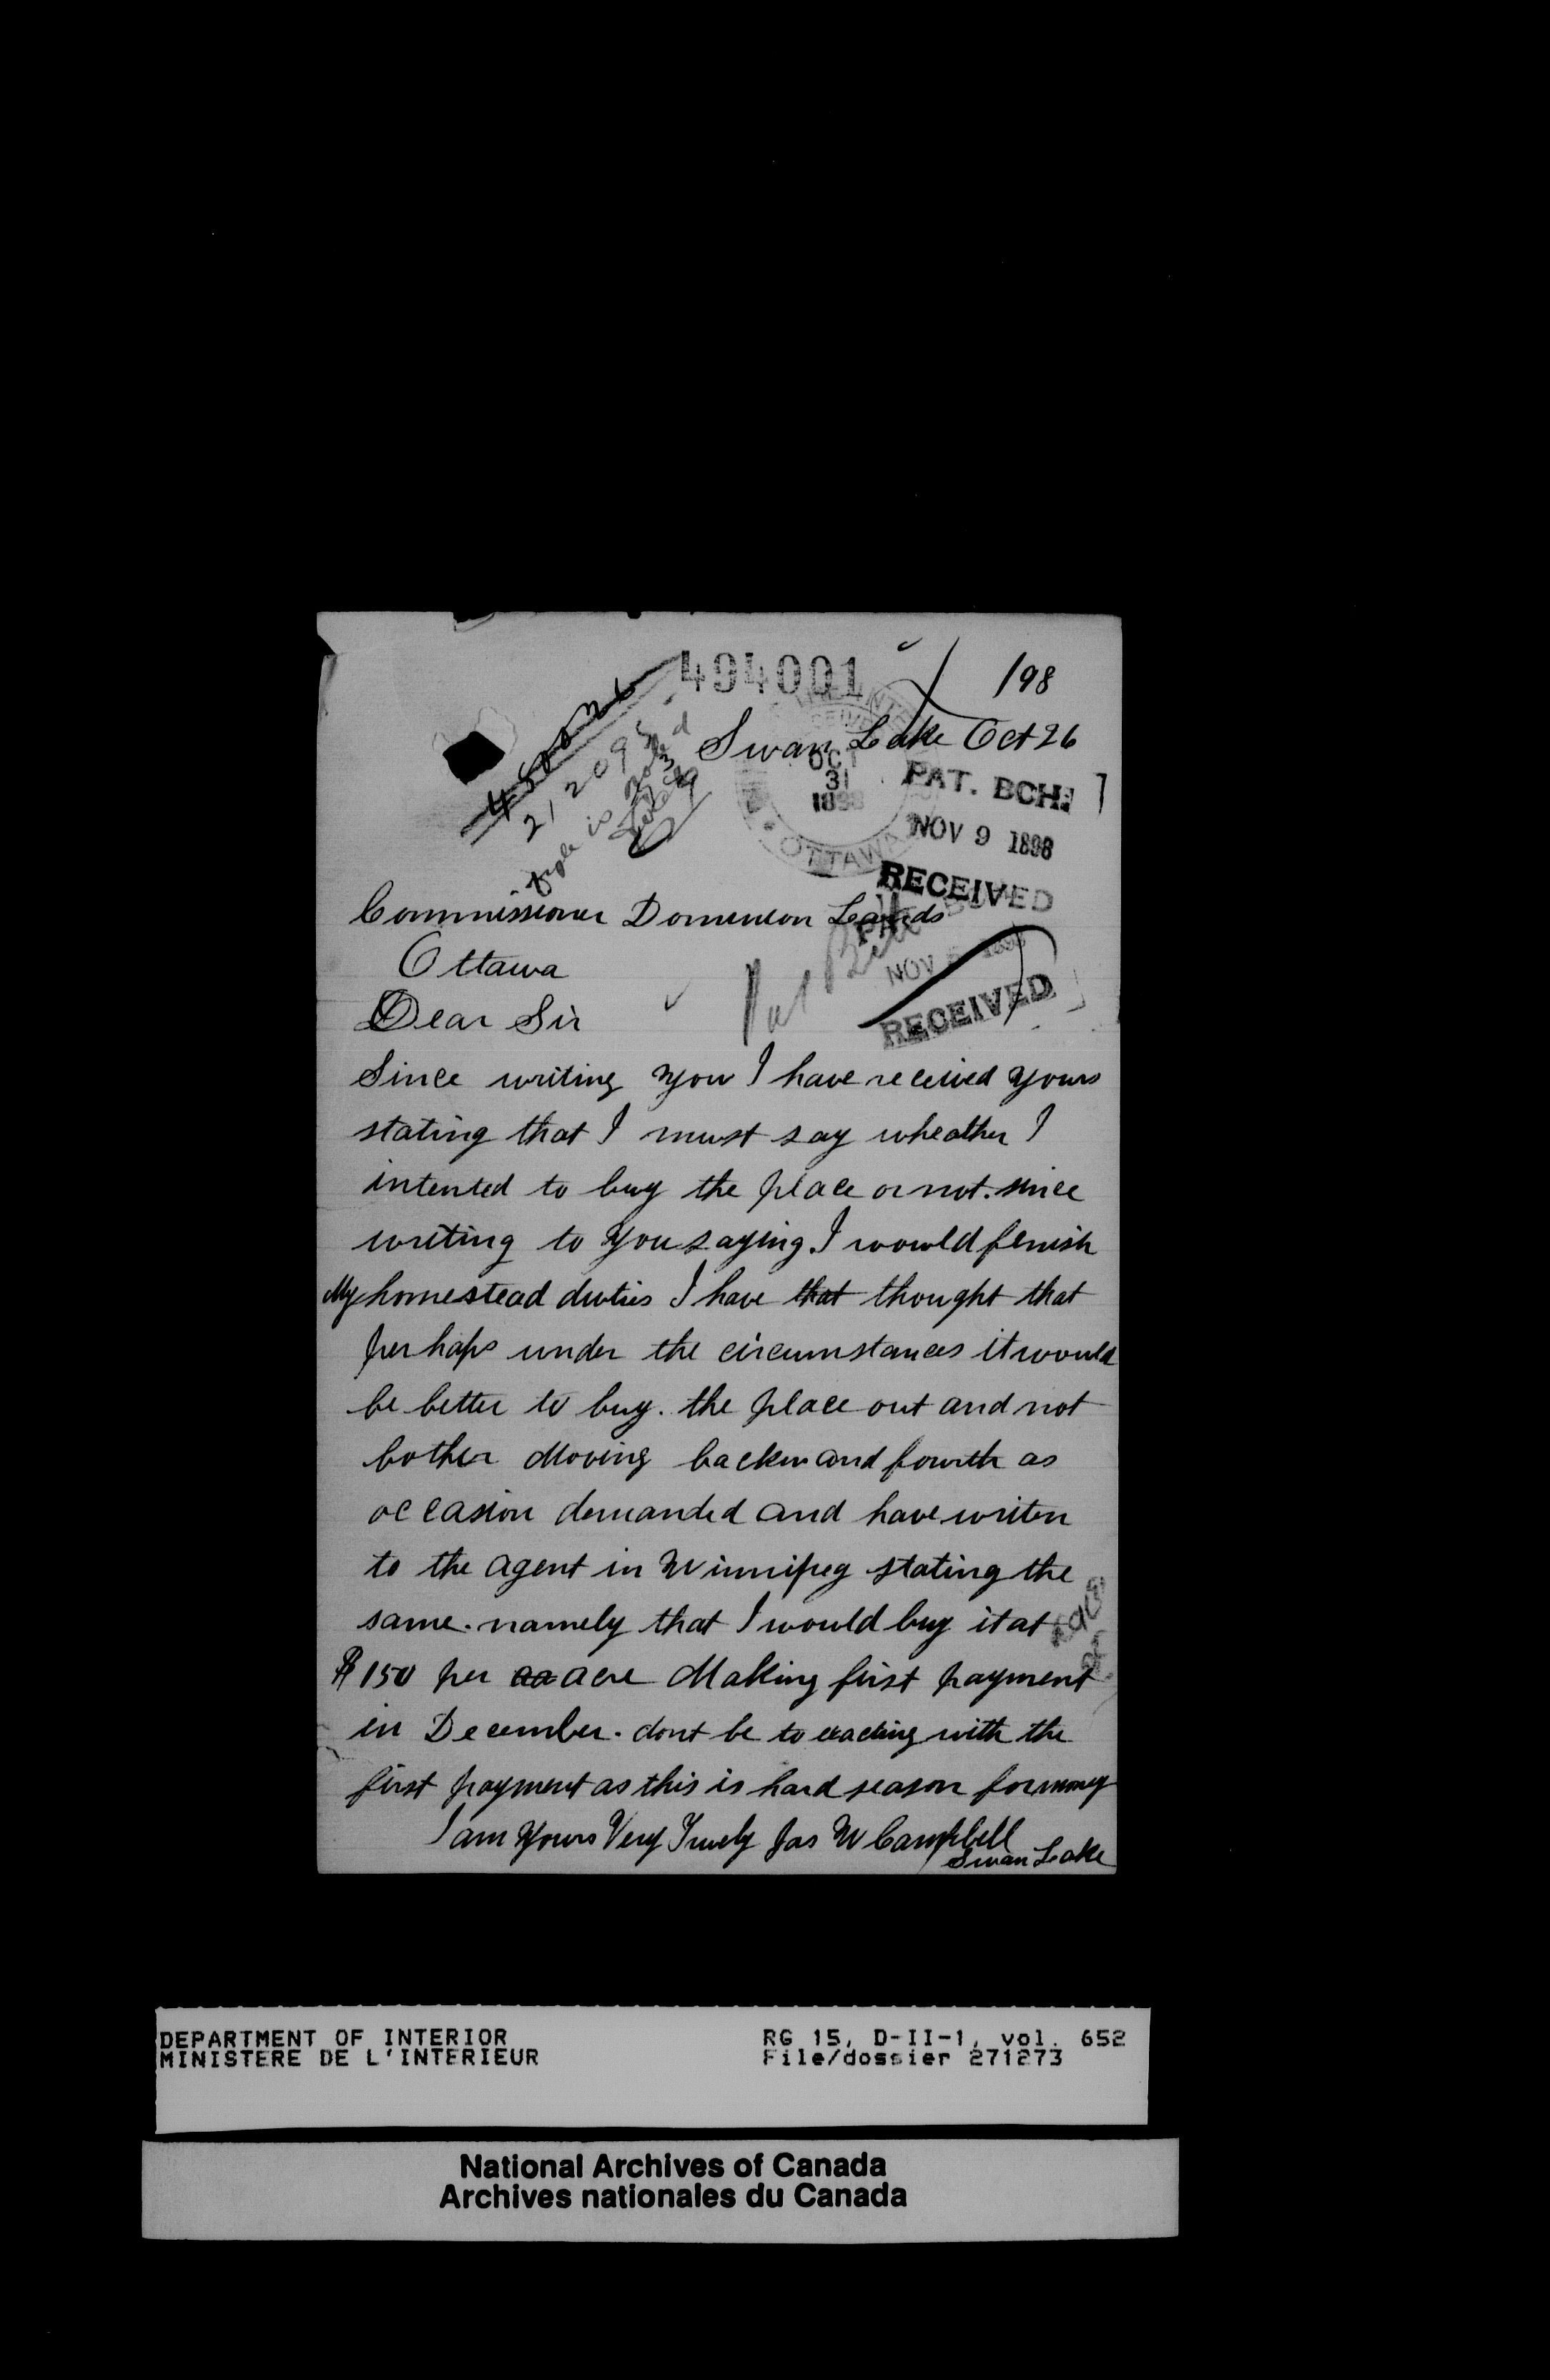 494001
/98
Swan Lake Oct 26
212095
OCT
31
1898
OTTAWA
PAT. BCH.
NOV 9 1898
RECEIVED
Commissioner Dominion Lands
Ottawa
NOV 1898
RECEIVED
Dear Sir
Since writing you I have received yours
stating that I must say wheather I
intented to buy the place or not. since
writing to you saying I wowld finish
My homestead duties I have that thought that
perhaps under the circumstances it would
be better to buy. the place out and not
bother Moving backw and fourth as
occasion demanded and have writen
to the agent in Winnipeg stating the
same. namely that I would buy it at
$150 per aa acre Making first payment
in December. dont be to exacting with the
first payment as this is hard season for money
I am Yours Very Truely Jas W Campbell
Swan Lake
DEPARTMENT OF INTERIOR
MINISTERE DE L'INTERIEUR
RG 15, D-II-1, vol. 652
File/dossier 271273
National Archives of Canada
Archives nationales du Canada